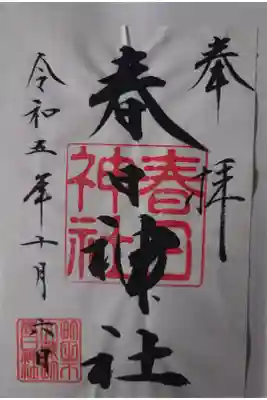 奉拝
春日神社
春日
神社
令和五年十月六日